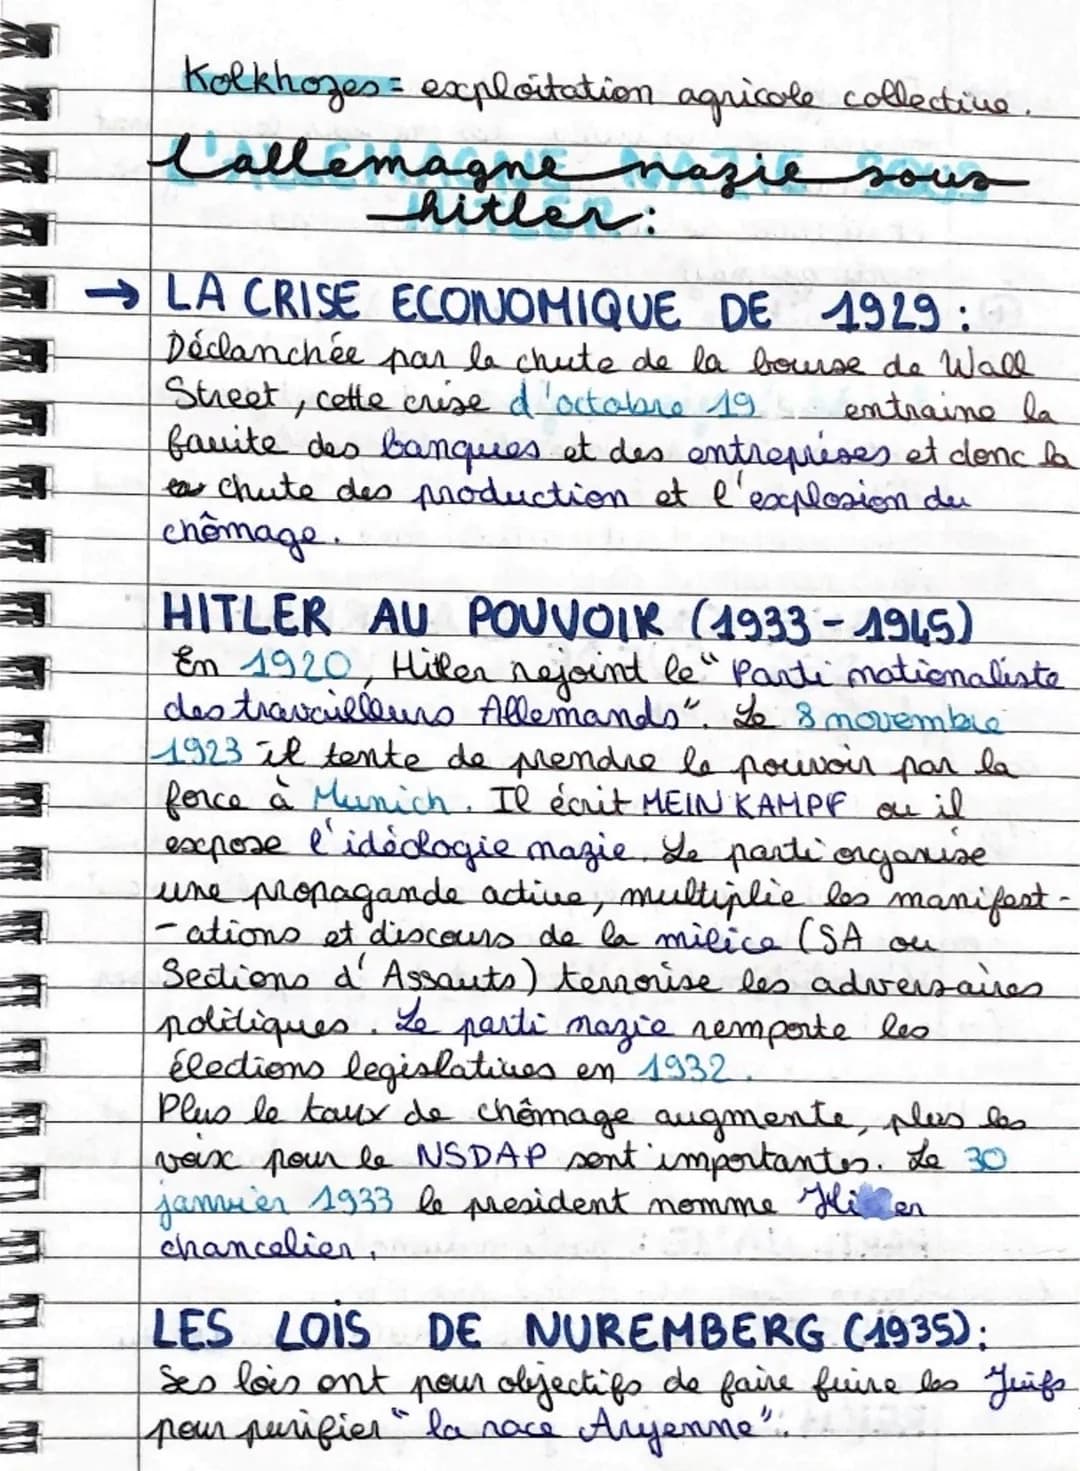 Kolkhozes = exploitation agricole collective.
L'allemagne nazie sous
hitler :
→ LA CRISE ECONOMIQUE DE 1929 :
Déclanchée par la chute de la bourse de Wall
Street, cette crise d'octobre 19 entraine la
fauite des banques et des entreprises et donc la
chute des production et l'explosion du
chômage.
HITLER AU POUVOIR (1933-1945)
En 1920, Hitler rejoint le "Parti nationaliste
des travailleurs Allemands". Le 8 novembre
1923 il tente de prendre le pouvoir par la
force à Munich. Il écrit MEIN KAMPF ou il
expose l'idéologie nazie. Le parti organise
une propagande active, multiplie les manifest-
-ations et discours de la milice (SA ou
Sections d'Assauts) terrorise les adversaires
politiques. Le parti nazie remporte les
élections legislatives en 1932.
Plus le taux de chômage augmente, plus les
voix pour le NSDAP sont importantes. Le 30
janvier 1933 le president nomme Hitler
chancelier.
LES LOIS DE NUREMBERG (1935) :
Ses lois ont pour objectifs de faire fuire les Juifs
pour purifier "la race Aryenne".